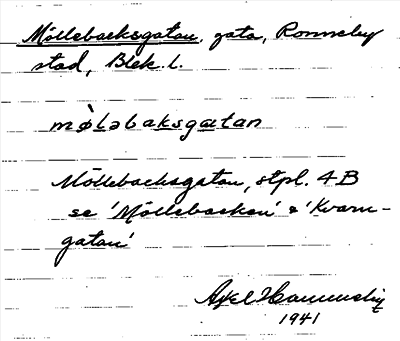 Möllebacksgatan, gata, Ronneby
stad, Blek. l.
mø̀ləbaksgatan
Möllebacksgatan, stpl. 4B
se 'Möllebacken' & 'Kvarn-
gatan'
Axel
1941